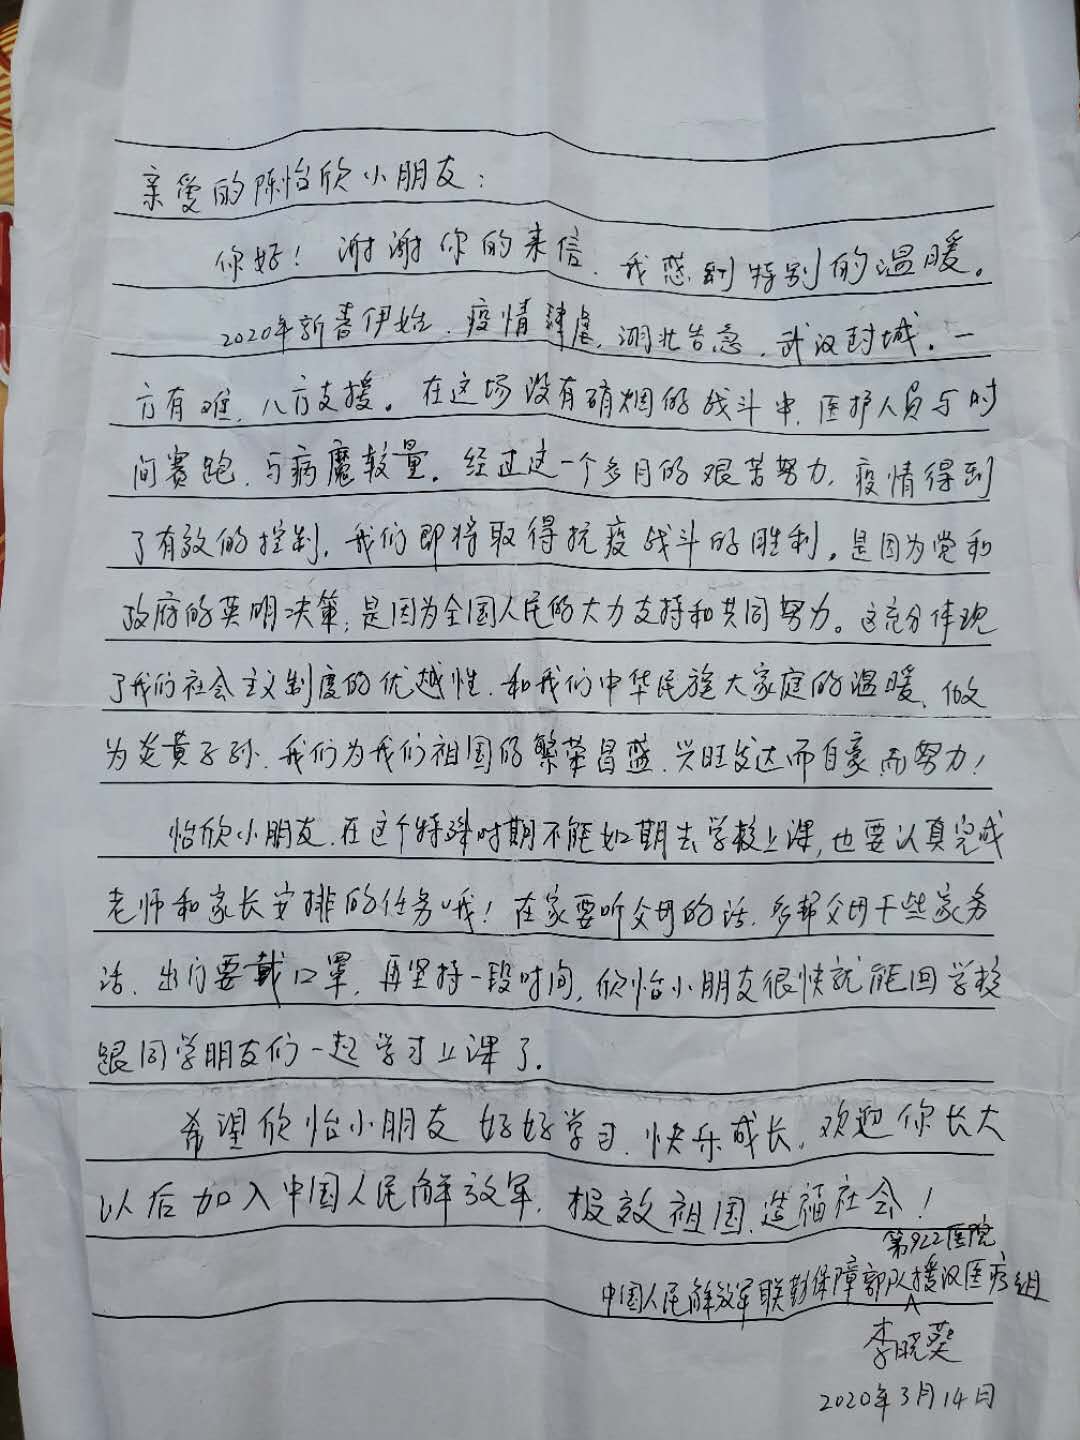 亲爱的陈怡欣小朋友：
你好！谢谢你的来信，我感到特别的温暖。
2020年新春伊始，疫情肆虐，湖北告急，武汉封城。一
方有难，八方支援。在这场没有硝烟的战斗中，医护人员与时
间赛跑，与病魔较量。经过这一个多月的艰苦努力，疫情得到
了有效的控制，我们即将取得抗疫战斗的胜利。是因为党和
政府的英明决策；是因为全国人民的大力支持和共同努力。这充分体现
了我们社会主义制度的优越性，和我们中华民族大家庭的温暖，做
为炎黄子孙，我们为我们祖国的繁荣昌盛，兴旺发达而自豪而努力！
怡欣小朋友，在这个特殊时期不能如期去学校上课，也要认真完成
老师和家长安排的任务哦！在家要听父母的话，多帮父母干些家务
活，出门要戴口罩，再坚持一段时间，欣怡小朋友很快就能回学校
跟同学朋友们一起学习上课了。
希望欣怡小朋友好好学习，快乐成长，欢迎你长大
以后加入中国人民解放军，报效祖国，造福社会！
第922医院
中国人民解放军联勤保障部队援汉医疗组
李晓葵
2020年3月14日